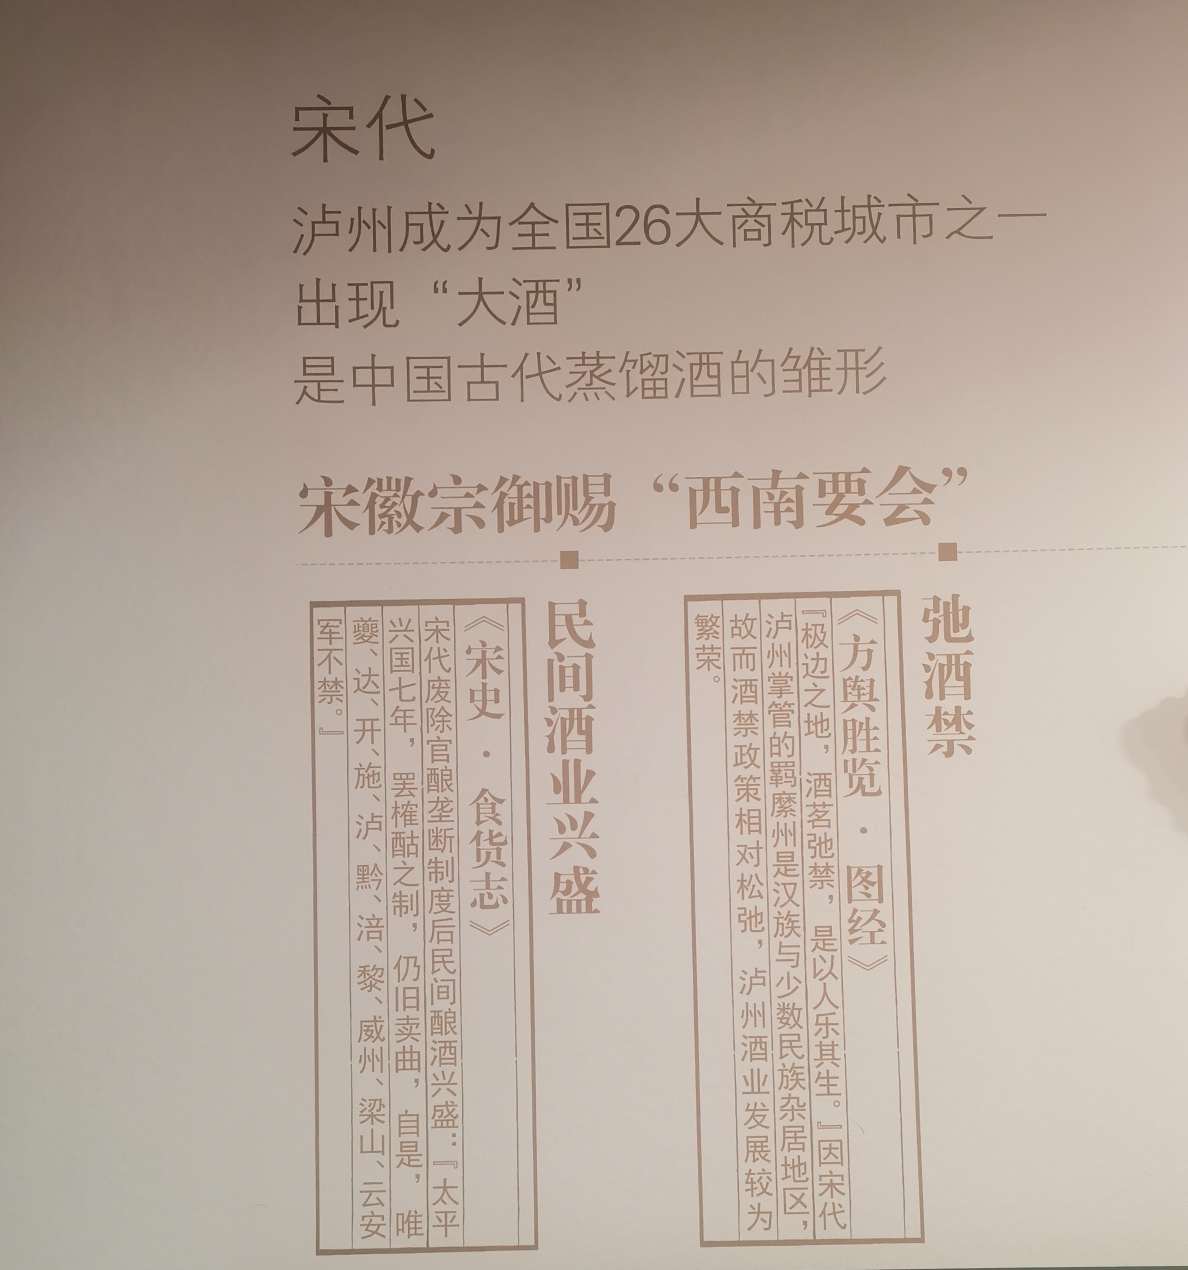 宋代
泸州成为全国26大商税城市之一
出现“大酒”
是中国古代蒸馏酒的雏形
宋徽宗御赐“西南要会”
弛酒禁
《方舆胜览·图经》
『极边之地，酒茗弛禁，是以人乐其生。』因宋代
泸州掌管的羁縻州是汉族与少数民族杂居地区，
故而酒禁政策相对松弛，泸州酒业发展较为
繁荣。
民间酒业兴盛
《宋史·食货志》
宋代废除官酿垄断制度后民间酿酒兴盛：『太平
兴国七年，罢榷酤之制，仍旧卖曲，自是，唯
夔、达、开、施、泸、黔、涪、黎、威州、梁山、云安
军不禁。』